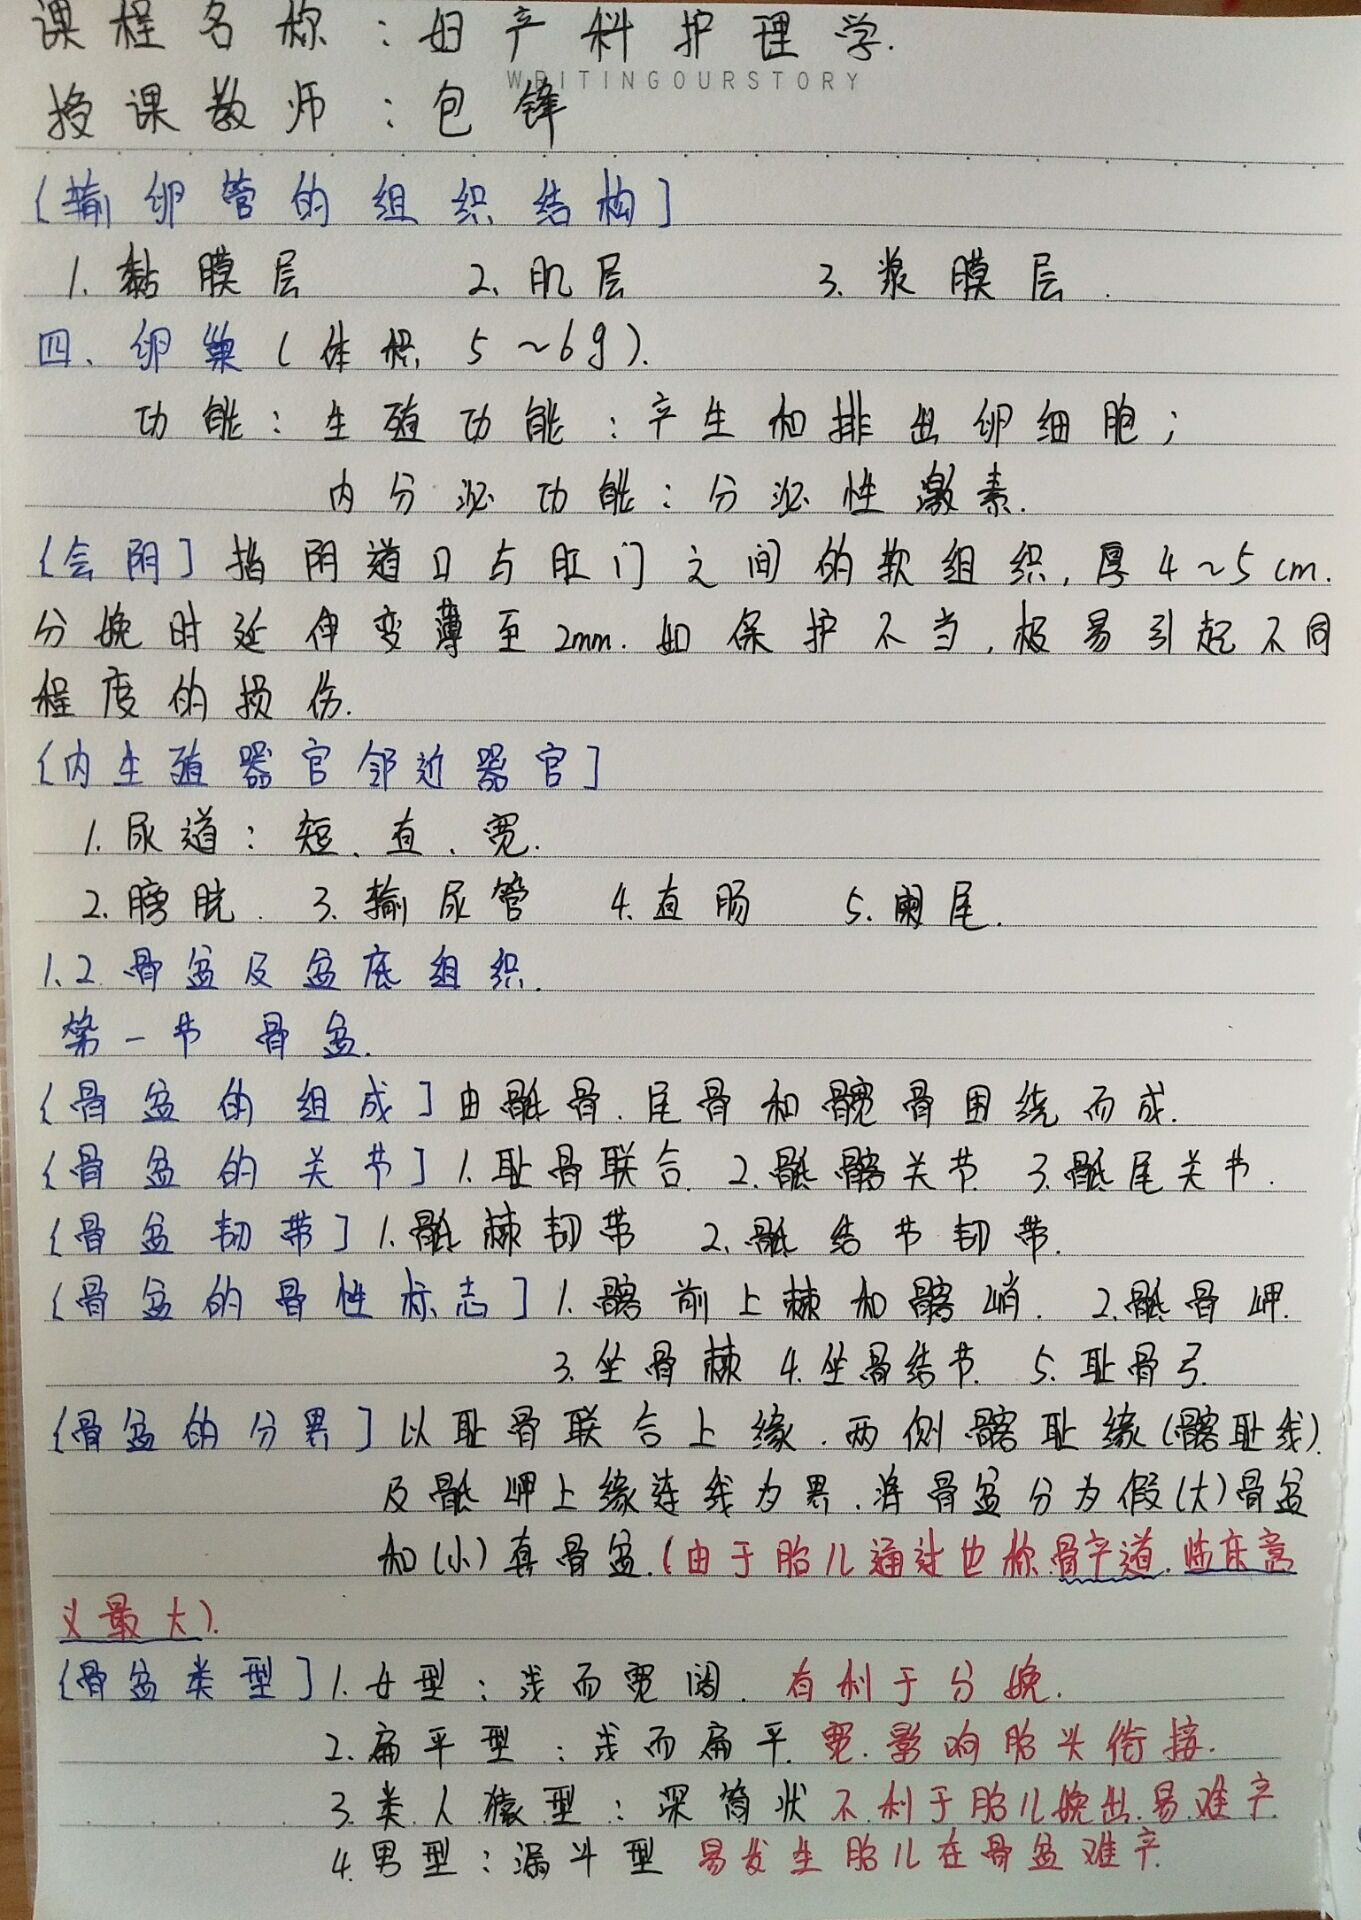 课程名称：妇产科护理学.
WRITINGOURSTORY
授课教师：包锋
[输卵管的组织结构]
1. 黏膜层 2. 肌层 3. 浆膜层.
四、卵巢(体积5~6g).
功能：生殖功能：产生和排出卵细胞；
内分泌功能：分泌性激素.
[会阴]指阴道口与肛门之间的软组织,厚4~5cm.
分娩时延伸变薄至2mm.如保护不当,极易引起不同
程度的损伤.
[内生殖器官邻近器官]
1.尿道：短、直、宽.
2.膀胱. 3.输尿管 4.直肠 5.阑尾.
1.2.骨盆及盆底组织.
第一节 骨盆.
[骨盆的组成]由骶骨.尾骨和髋骨围绕而成.
[骨盆的关节]1.耻骨联合. 2.骶髂关节. 3.骶尾关节.
[骨盆韧带]1.骶棘韧带 2.骶结节韧带.
[骨盆的骨性标志]1.髂前上棘和髂嵴. 2.骶骨岬.
3.坐骨棘 4.坐骨结节. 5.耻骨弓.
[骨盆的分界]以耻骨联合上缘.两侧髂耻缘(髂耻线).
及骶岬上缘连线为界.将骨盆分为假(大)骨盆
和(小)真骨盆.(由于胎儿通过也称骨产道.临床意
义最大).
[骨盆类型]1.女型：浅而宽阔.有利于分娩.
2.扁平型：浅而扁平.宽.影响胎头衔接.
3.类人猿型：深筒状 不利于胎儿娩出.易难产
4.男型：漏斗型 易发生胎儿在骨盆难产.